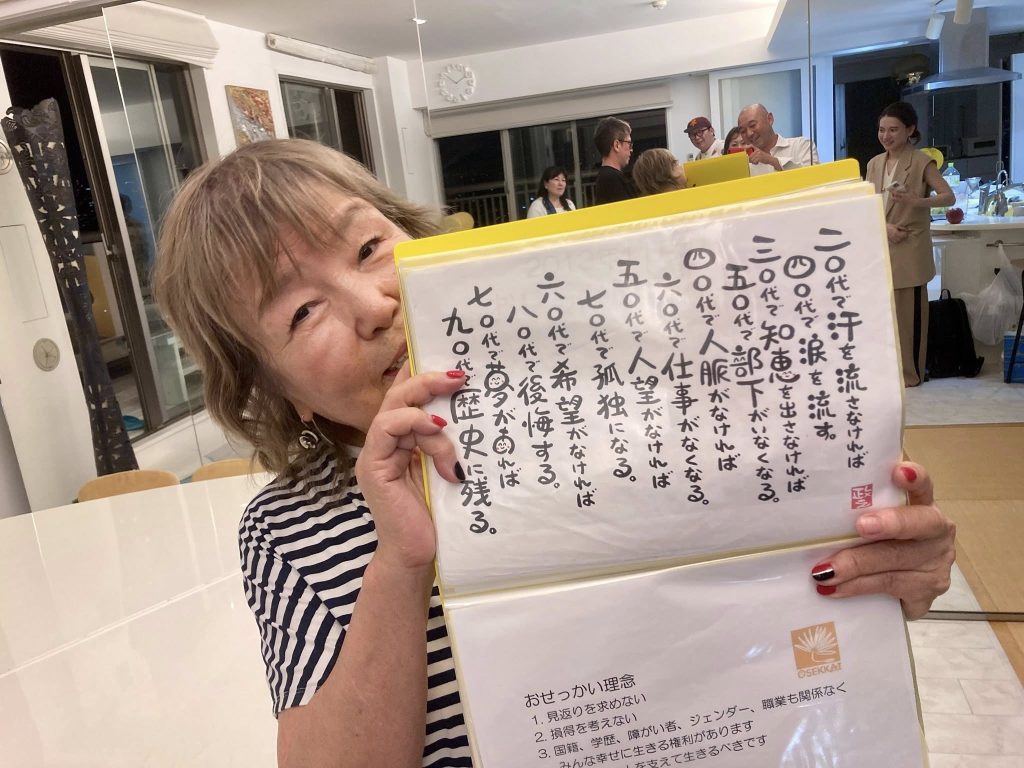 二〇代で汗を流さなければ
四〇代で涙を流す。
三〇代で知恵を出さなければ
五〇代で部下がいなくなる。
四〇代で人脈がなければ
六〇代で仕事がなくなる。
五〇代で人望がなければ
七〇代で孤独になる。
六〇代で希望がなければ
八〇代で後悔する。
七〇代で夢があれば
九〇代で歴史に残る。
OSEKKAI
おせっかい理念
1. 見返りを求めない
2. 損得を考えない
3. 国籍、学歴、障がい者、ジェンダー、職業も関係なく
みんな幸せに生きる権利があります
を支えて生きるべきです